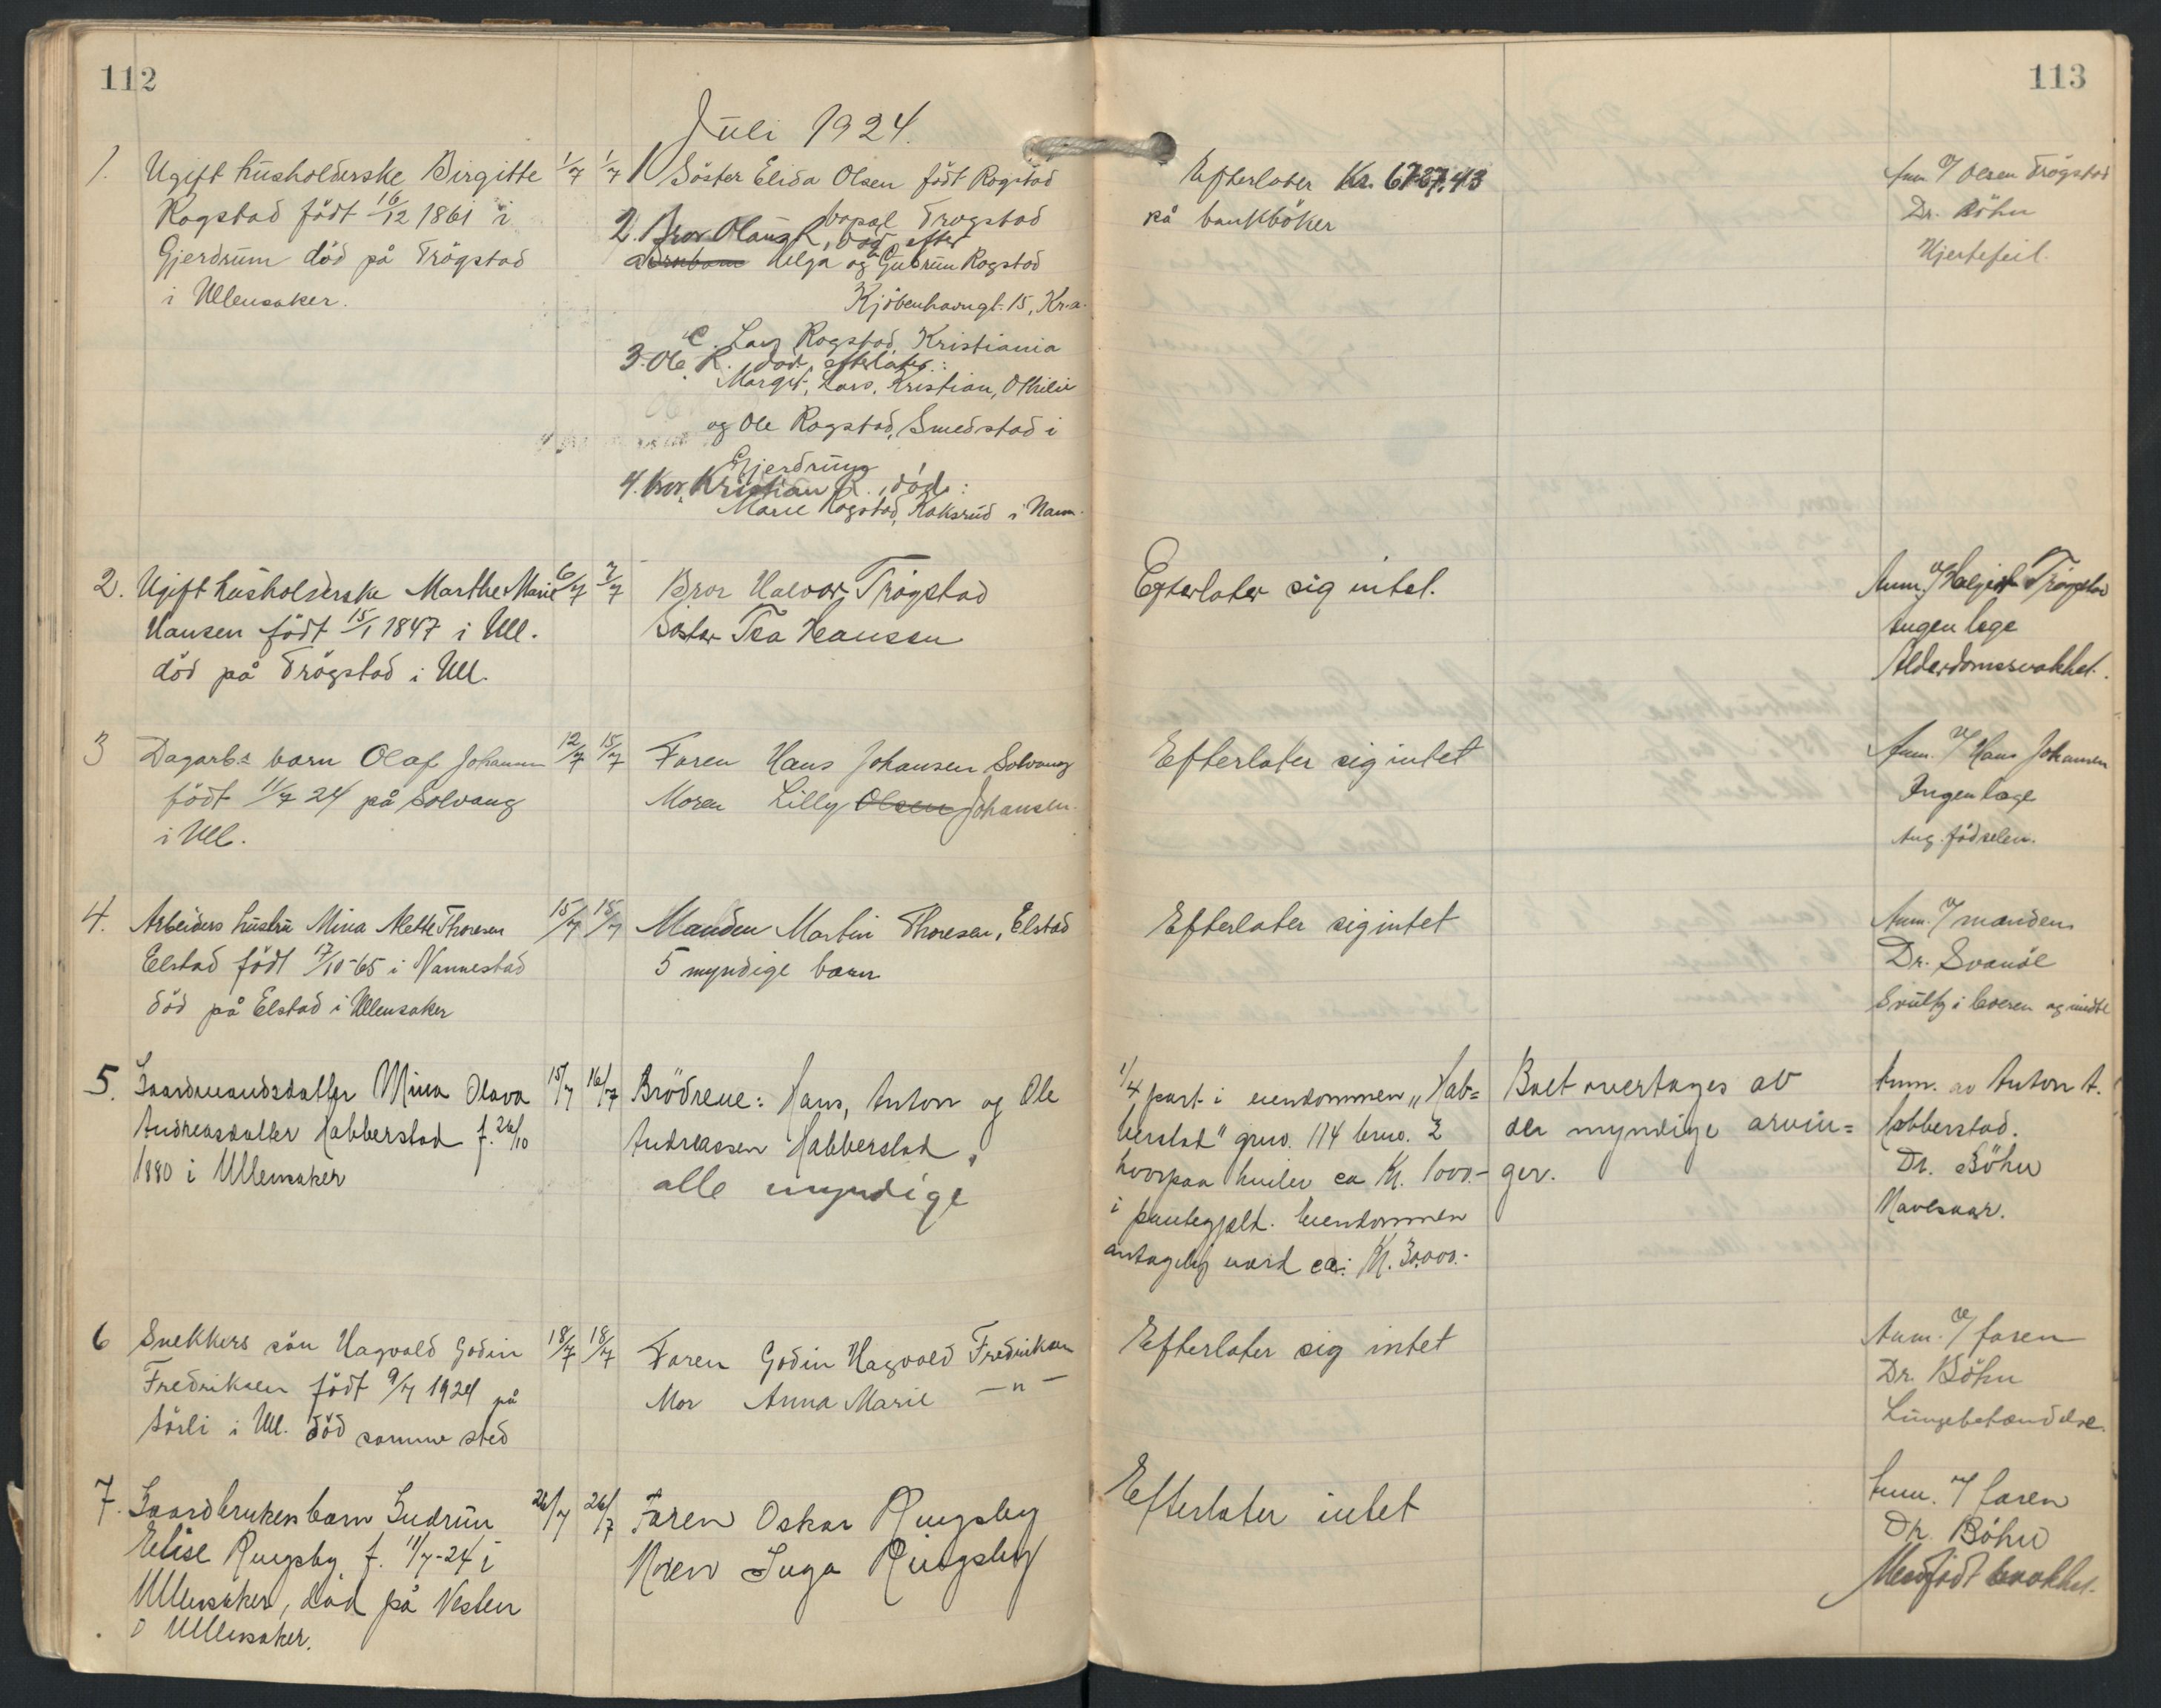 112
113
Juli 1924.
1. Ugift husholderske Birgitte
Rogstad födt 16/12 1861 i
Gjerdrum död på Trögstad
i Ullensaker.
1/7 1/7
1 Söster Elida Olsen födt Rogstad
bopæl Trögstad
2. Bror Olaus R, död, efter
Helga og Gudrun Rogstad
Kjöbenhavngt. 15, Kr.a.
C. Lars Rogstad Kristiania
3. Ole R. död, efterlater:
Margit, Lars, Kristian, Othilie
og Ole Rogstad, Smedstad i
Gjerdrum
4. Bror, Kristian R., död:
Marie Rogstad, Koksrud i Nann.
Efterlater Kr. 6727,43
på bankböker
Anm. v/ Olsen Trögstad
Dr. Böhn
Hjertefeil.
2. Ugift husholderske Marthe Marie
Hansen födt 15/1 1847 i Ull.
död på Trögstad i Ull.
6/7 7/7
Bror Halvor Trögstad
Söster Tea Hansen
Efterlater sig intet.
Anm. v/ Trögstad
Ingen læge
Alderdomssvakhet.
3 Dagarb.s barn Olaf Johansen
födt 11/7 24 på Solvang
i Ull.
12/7 15/7
Faren Hans Johansen Solvang
Moren Lilly Olsen Johansen.
Efterlater sig intet
Anm. v/ Hans Johansen
Ingen læge
Ang. födselen.
4. Arbeiders hustru Mina Alette Thoresen
Elstad födt 17/10-65 i Nannestad
död på Elstad i Ullensaker
15/7 15/7
Manden Martin Thoresen, Elstad
5 myndige barn
Efterlater sig intet
Anm. v/ manden
Dr. Svanöe
Svulst i leveren og
5. Gaardmandsdatter Mina Olava
Andreasdatter Habberstad f. 26/10
1880 i Ullensaker
15/7 16/7
Brödrene: Hans, Anton og Ole
Andreassen Habberstad,
alle myndige
1/4 part i eiendommen "Hab=
berstad" grno. 114 brno. 2
hvorpaa hviler ca Kr. 1000.-
i pantegjæld. Eiendommen
antagelig værd ca: Kr. 30.000.-
Boet overtages av
de myndige arvin=
ger.
Anm. av Anton A.
Habberstad.
Dr. Böhn
Mavesaar.
6 Snekkers sön Hagvald Godin
Fredriksen födt 9/7 1924 på
Sörli i Ull. död samme sted
18/7 18/7
Faren Godin Hagvald Fredriksen
Mor Anna Marie —"—
Efterlater sig intet
Anm. v/ faren
Dr. Böhn
Lungebetændelse.
7. Gaardbrukers barn Gudrun
Elise Ringsby f. 11/7-24 i
Ullensaker, död på Vesten
i Ullensaker.
26/7 26/7
Faren Oskar Ringsby
Moren Inga Ringsby
Efterlater intet
Anm. v/ faren
Dr. Böhn
Medfödt svakhet.